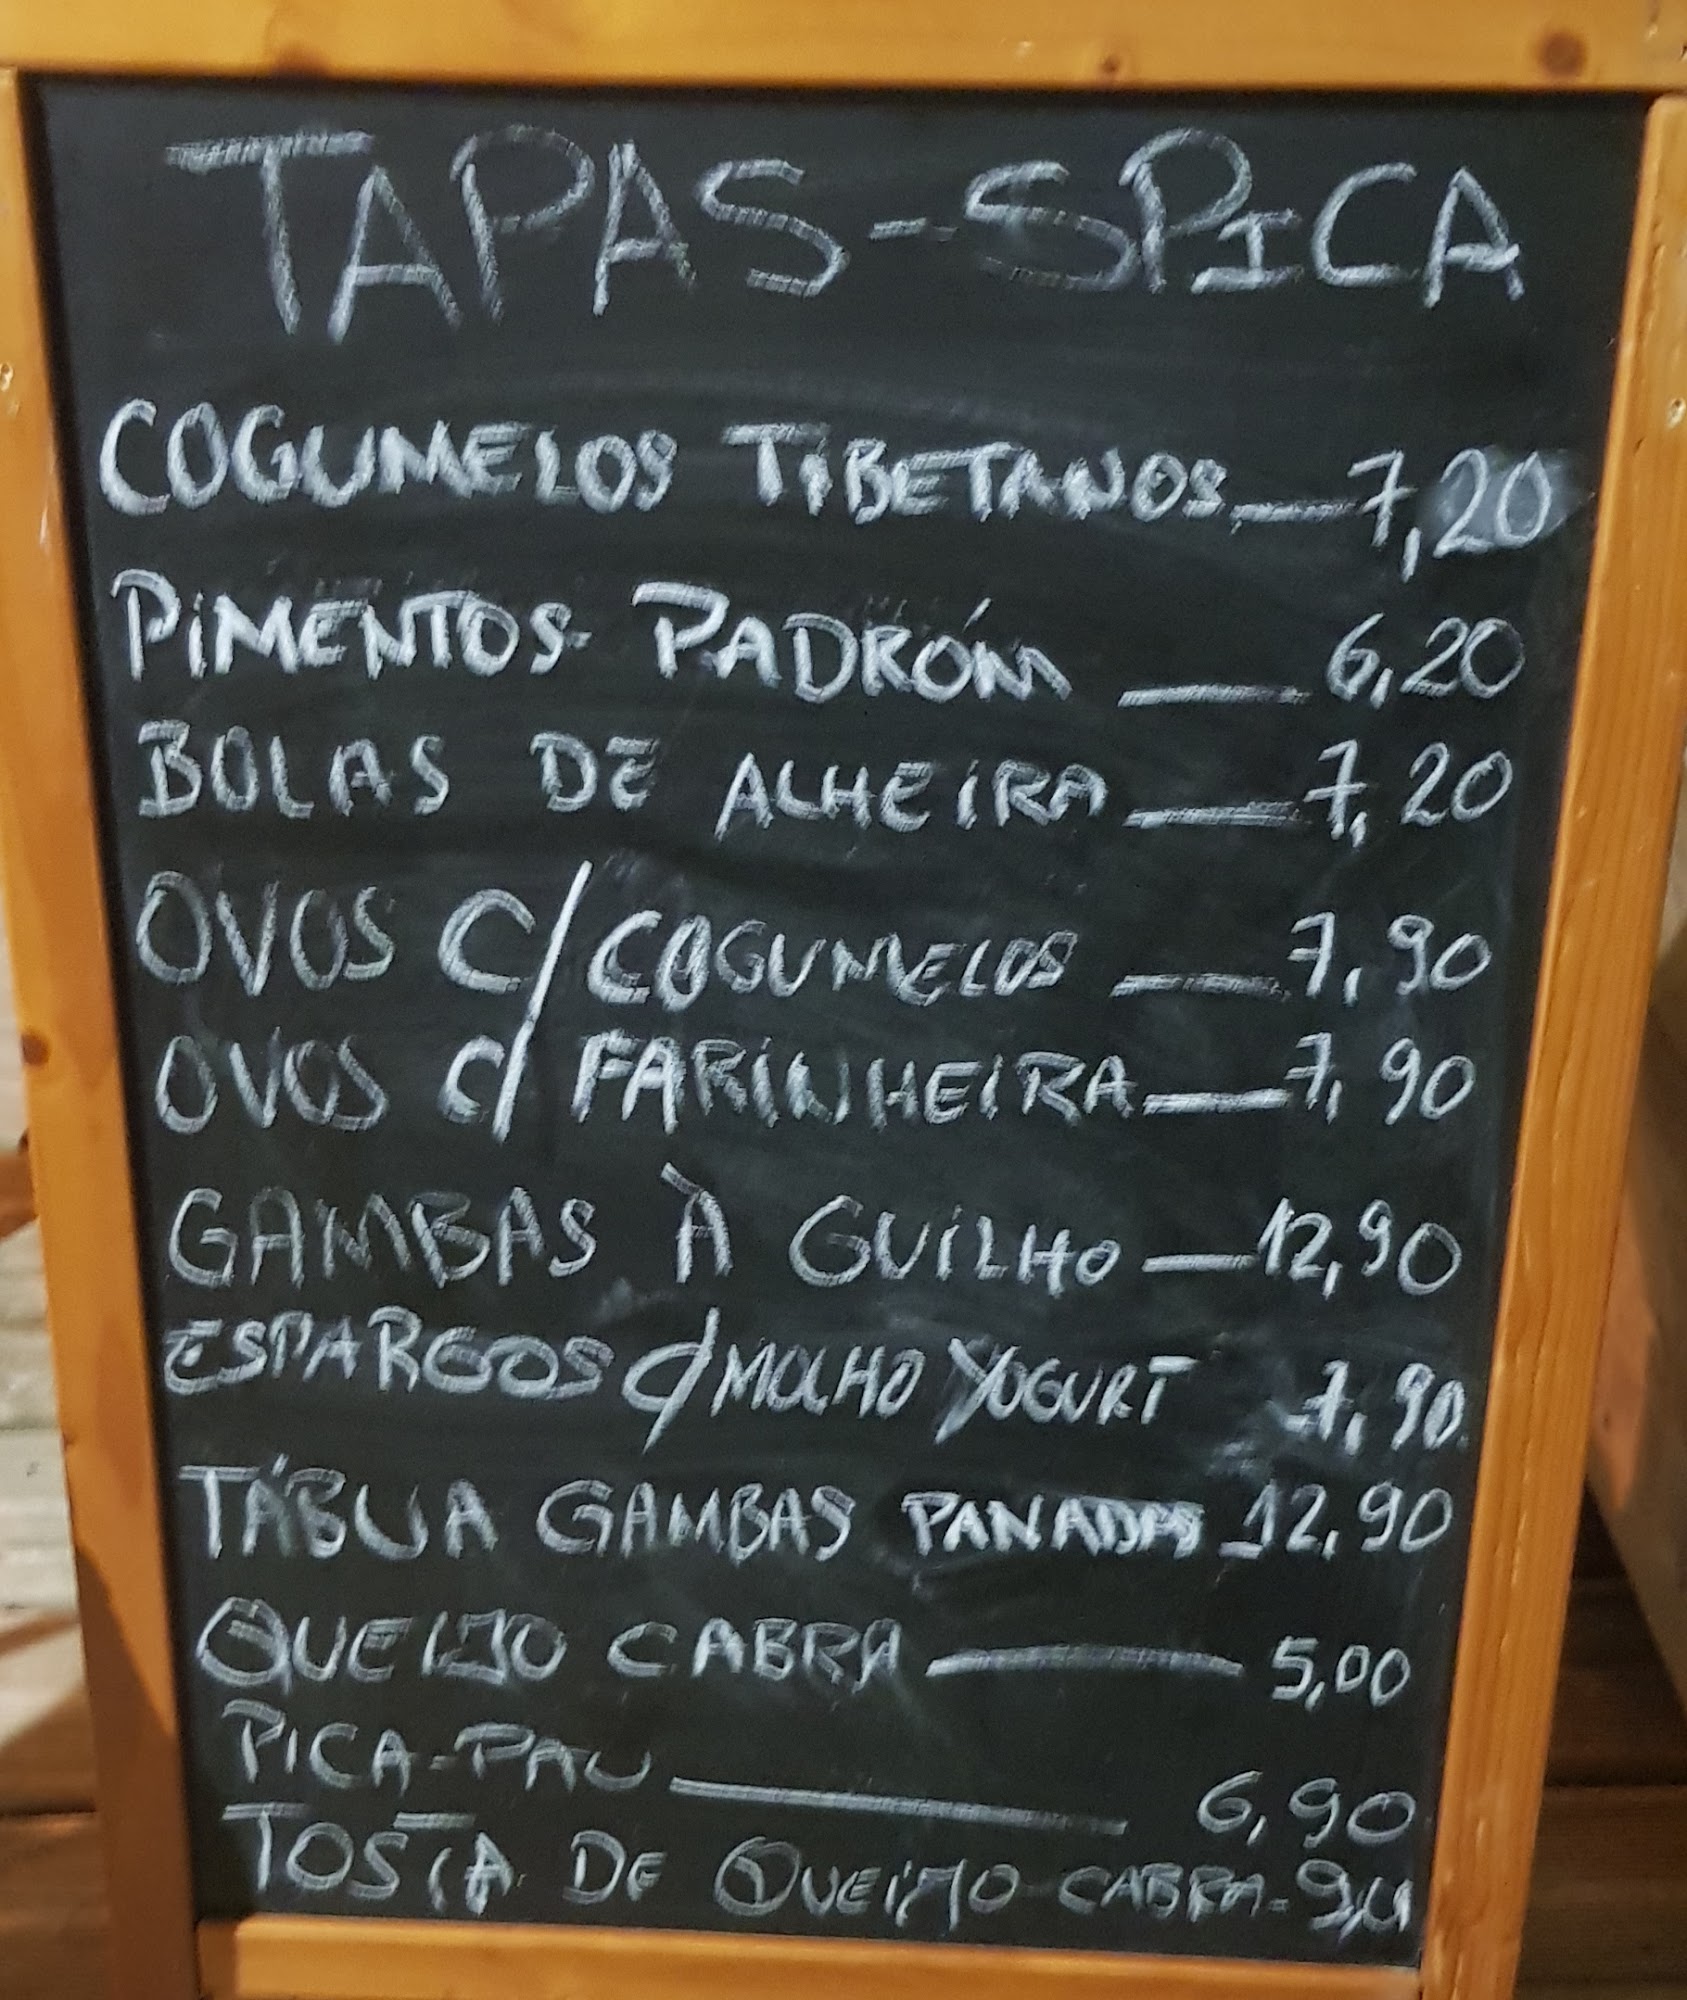 TAPAS-SPICA
COGUMELOS TIBETANOS — 7,20
PIMENTOS PADRÓM — 6,20
BOLAS DE ALHEIRA — 7,20
OVOS C/ COGUMELOS — 7,90
OVOS C/ FARINHEIRA — 7,90
GAMBAS À GUILHO — 12,90
ESPARGOS C/ MOLHO YOGURT 7,90
TÁBUA GAMBAS PANADAS 12,90
QUEIJO CABRA — 5,00
PICA-PAU — 6,90
TOSTA DE QUEIJO CABRA -